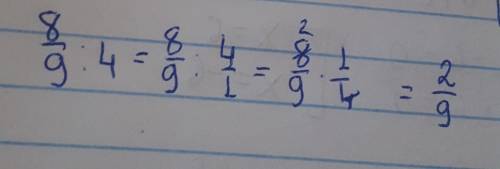 8/9 : 4 = 8/9 : 4/1 = 8/9 · 1/4 = 2/9
2